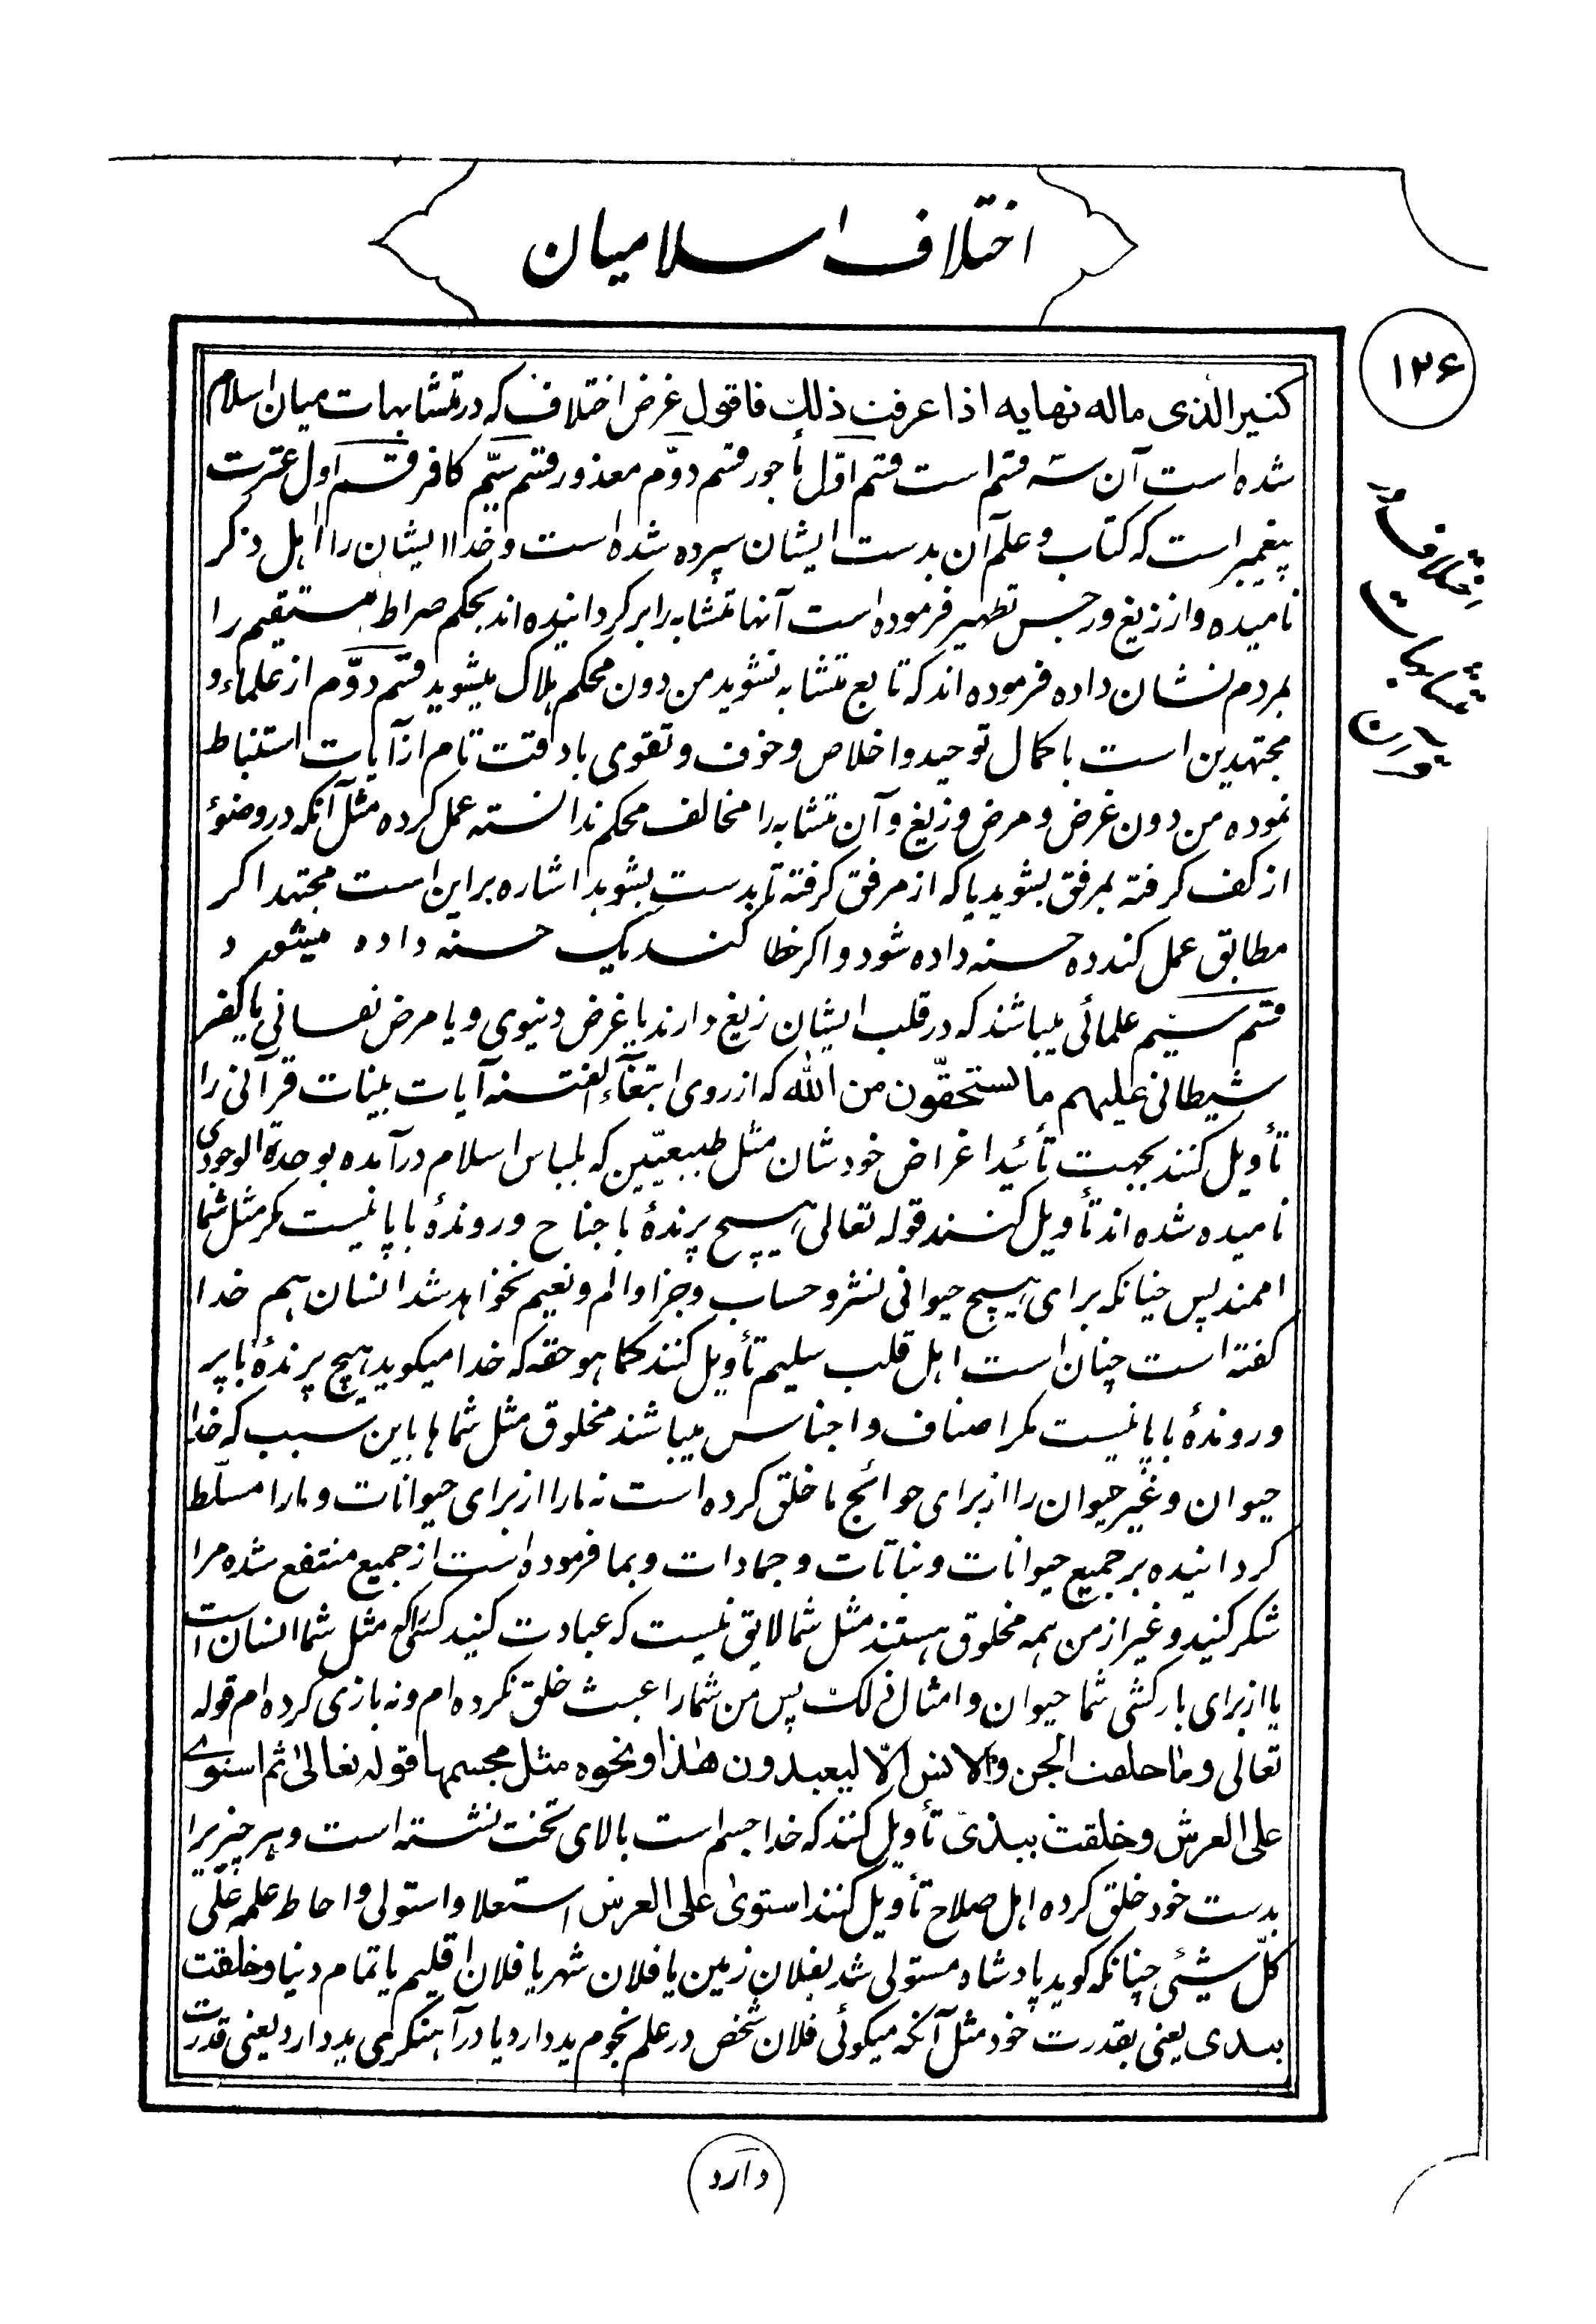 اختلاف اسلامیان
۱۲۶
کثیر الذی ماله نهایه اذا عرفت ذلک فاقول غرض اختلاف که در متشابهات میان اسلام
شده است آن سه قسم است قسم اوّل مأجور قسم دوّم معذور قسم سیّم کافر قسم اول عترت
پیغمبر است که کتاب و علم آن بدست ایشان سپرده شده است و خدا ایشان را اهل ذکر
نامیده و از زیغ و رجس تطهیر فرموده است آنها متشابه را برگردانیده اند بحکم صراط مستقیم را
بمردم نشان داده فرموده اند که تابع متشابه نشوید من دون محکم هلاک میشوید قسم دوّم از علماء و
مجتهدین است با کمال توحید و اخلاص و خوف و تقوی با دقت تام از آیات استنباط
نموده من دون غرض و مرض و زیغ و آن متشابه را مخالف محکم ندانسته عمل کرده مثل آنکه در وضوء
از کف گرفته بمرفق بشوید یا که از مرفق گرفته تا بدست بشوید اشاره بر این است مجتهد اگر
مطابق عمل کند ده حسنه داده شود و اگر خطا کند یک حسنه داده میشود
قسم سیّم علمائی میباشند که در قلب ایشان زیغ دارند یا غرض دنیوی و یا مرض نفسانی یا کفر
شیطانی علیهم ما یستحقّون من الله که از روی ابتغاء الفتنه آیات بینات قرآنی را
تأویل کنند بجهت تأئید اغراض خودشان مثل طبیعیّین که بلباس اسلام درآمده بوحدة الوجودی
نامیده شده اند تأویل کنند قوله تعالی هیچ پرندهٔ با جناح و روندهٔ با پا نیست مگر مثل شما
اممند پس چنانکه برای هیچ حیوانی نشر و حساب و جزا و الم و نعیم نخواهد شد انسان هم خدا
گفته است چنان است اهل قلب سلیم تأویل کنند کما هو حقه که خدا میگوید هیچ پرندهٔ با پر
و روندهٔ با پا نیست مگر اصناف و اجناس میباشند مخلوق مثل شماها باین سبب که خدا
حیوان و غیر حیوان را از برای حوائج ما خلق کرده است نه ما را از برای حیوانات و ما را مسلّط
گردانیده بر جمیع حیوانات و نباتات و جمادات و بما فرموده است از جمیع منتفع شده مرا
شکر کنید و غیر از من همه مخلوق هستند مثل شما لایق نیست که عبادت کنید کسی را که مثل شما انسان است
یا از برای بارکشی شما حیوان و امثال ذلک پس من شما را عبث خلق نکرده ام و نه بازی کرده ام قوله
تعالی و ما خلقت الجن و الانس الّا لیعبدون هذا و نحوه مثل مجسمها قوله تعالی ثم استوی
علی العرش و خلقت بیدی تأویل کنند که خدا جسم است بالای تخت نشسته است و هر چیز را
بدست خود خلق کرده اهل صلاح تأویل کنند استوی علی العرش استعلا و استولی و احاط علمه علی
کلّ شیئی چنانکه گوید پادشاه مستولی شد بفلان زمین یا فلان شهر یا فلان اقلیم یا تمام دنیا و خلقت
بیدی یعنی بقدرت خود مثل آنکه میگوئی فلان شخص در علم نجوم ید دارد یا در آهنگری ید دارد یعنی قدرت
دارد